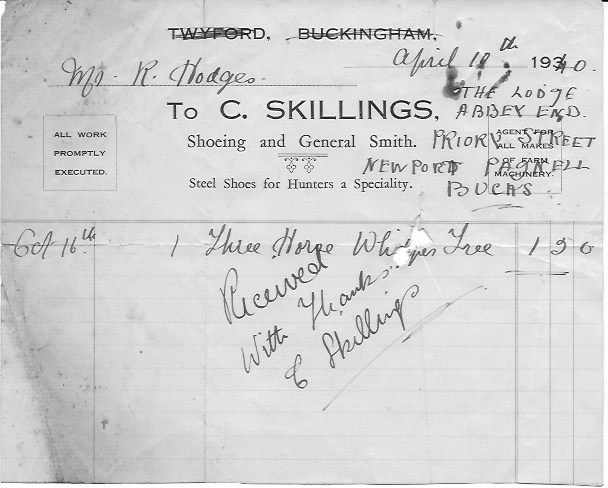 TWYFORD, BUCKINGHAM,
April 10th 1940.
Mr. R. Hodges.
THE LODGE
ABBEY END.
PRIORY STREET
NEWPORT PAGNELL
BUCKS
To C. SKILLINGS,
Shoeing and General Smith.
Steel Shoes for Hunters a Speciality.
ALL WORK
PROMPTLY
EXECUTED.
AGENT FOR
ALL MAKES
OF FARM
MACHINERY.
Oct 16th 1 Three Horse Tree 1
Received
With Thanks
C Skillings